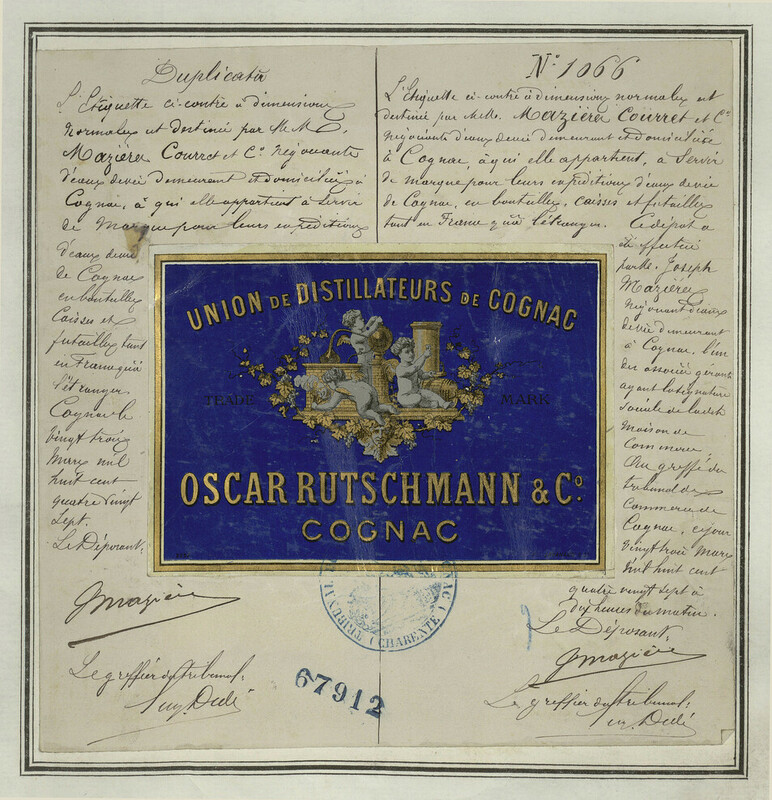 Duplicata
L'Etiquette ci-contre à dimensions
normales et destinée par M.M.
Mazière Courret et Cie Négociants
d'eaux de vie demeurant et domiciliés à
Cognac, à qui elle appartient à Servir
de Marque pour leurs expéditions
d'eaux de vie
de Cognac
en bouteilles
Caisses et
futailles tant
en France qu'à
l'étranger
Cognac le
vingt trois
Mars mil
huit cent
quatre vingt
Sept.
Le Déposant:
JMazière
Le greffier du tribunal:
No 1066
L'Etiquette ci-contre à dimensions normales est
destinée par MM. Mazière Courret et Cie
négociants d'eaux de vie demeurant et domiciliés
à Cognac, à qui elle appartient, à Servir
de marque pour leurs expéditions d'eaux de vie
de Cognac, en bouteilles, caisses et futailles
tant en France qu'à l'étranger. Ce dépot a
été effectué
par M. Joseph
Mazière
négociant d'eaux
de vie demeurant
à Cognac, l'un
des associés gérants
ayant la signature
sociale de ladite
maison de
Commerce
Au greffe du
tribunal de
Commerce de
Cognac, ce jour
vingt trois Mars
mil huit cent
quatre vingt sept à
dix heures du matin.
Le Déposant:
JMazière
Le greffier du tribunal:
UNION DE DISTILLATEURS DE COGNAC
TRADE MARK
OSCAR RUTSCHMANN & Co.
COGNAC
(CHARENTE)
67912